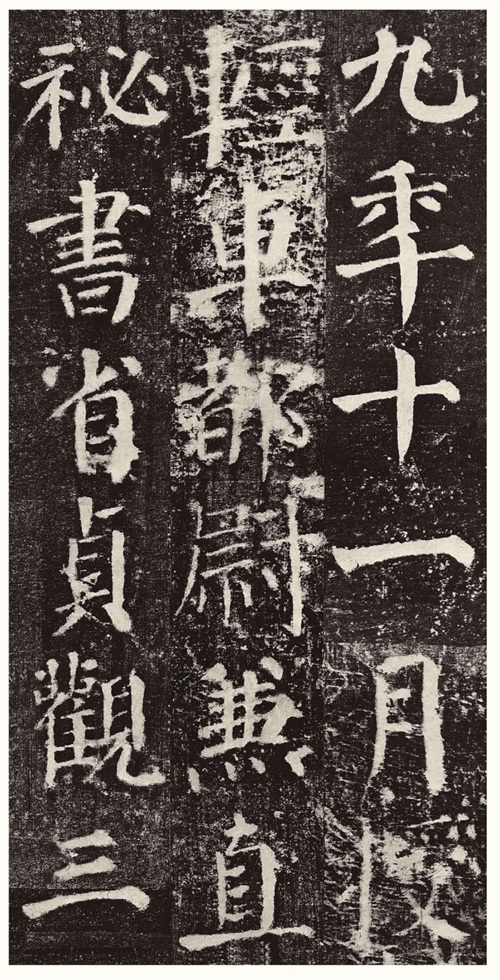 九年十一月授
輕車都尉兼直
祕書省貞觀三